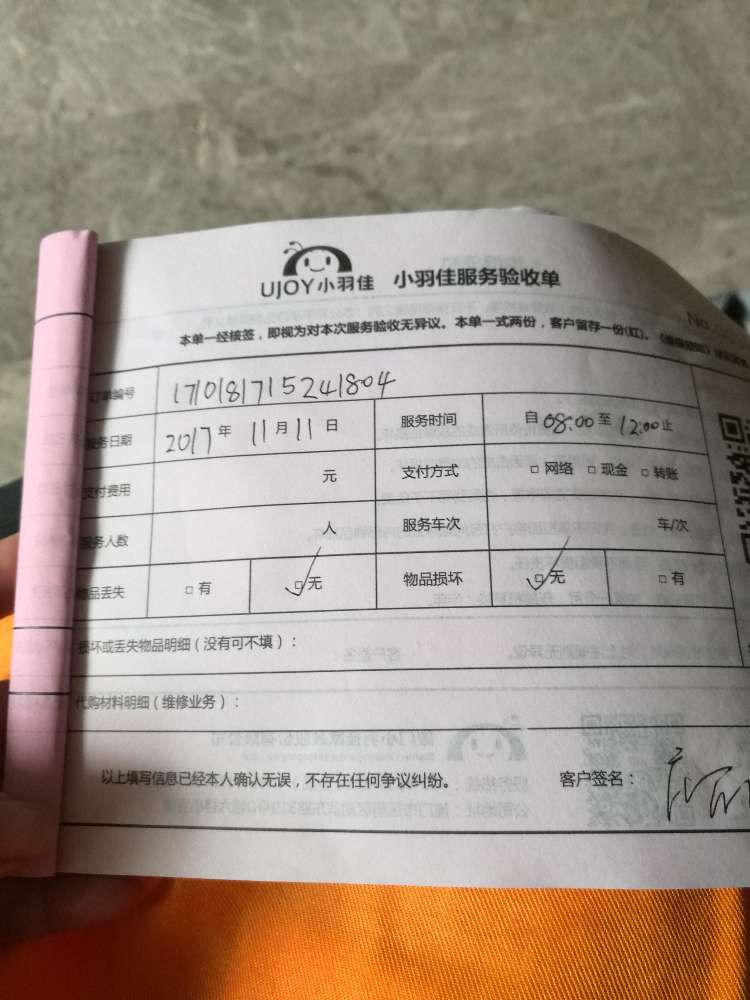 UJOY小羽佳 小羽佳服务验收单
本单一经核签，即视为对本次服务验收无异议。本单一式两份，客户留存一份(红)。
No.
订单编号 171018171524 1804
服务日期 2017年 11月11日 服务时间 自08:00至12:00止
支付费用 元 支付方式 □网络 □现金 □转账
服务人数 人 服务车次 车/次
物品丢失 □有 □无 物品损坏 □无 □有
损坏或丢失物品明细（没有可不填）：
代购材料明细（维修业务）：
以上填写信息已经本人确认无误，不存在任何争议纠纷。 客户签名：